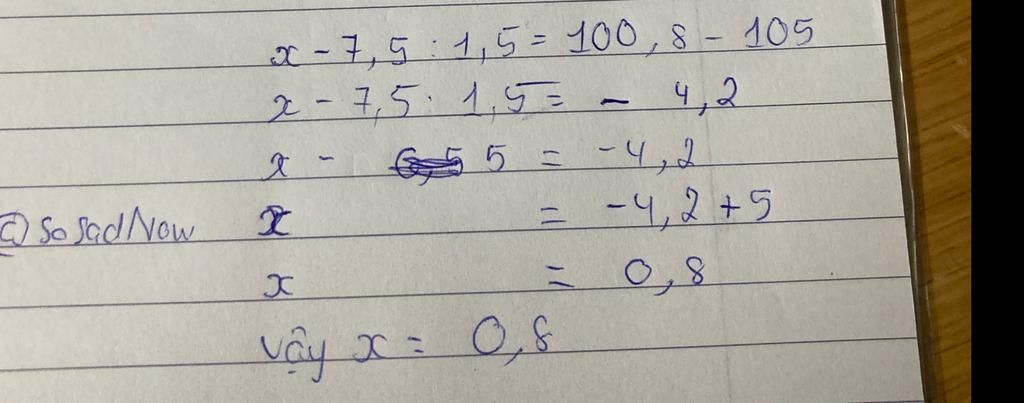 x - 7,5 : 1,5 = 100,8 - 105
x - 7,5 : 1,5 = - 4,2
x - 5 = -4,2
@SosadNow x = -4,2 + 5
x = 0,8
vậy x = 0,8